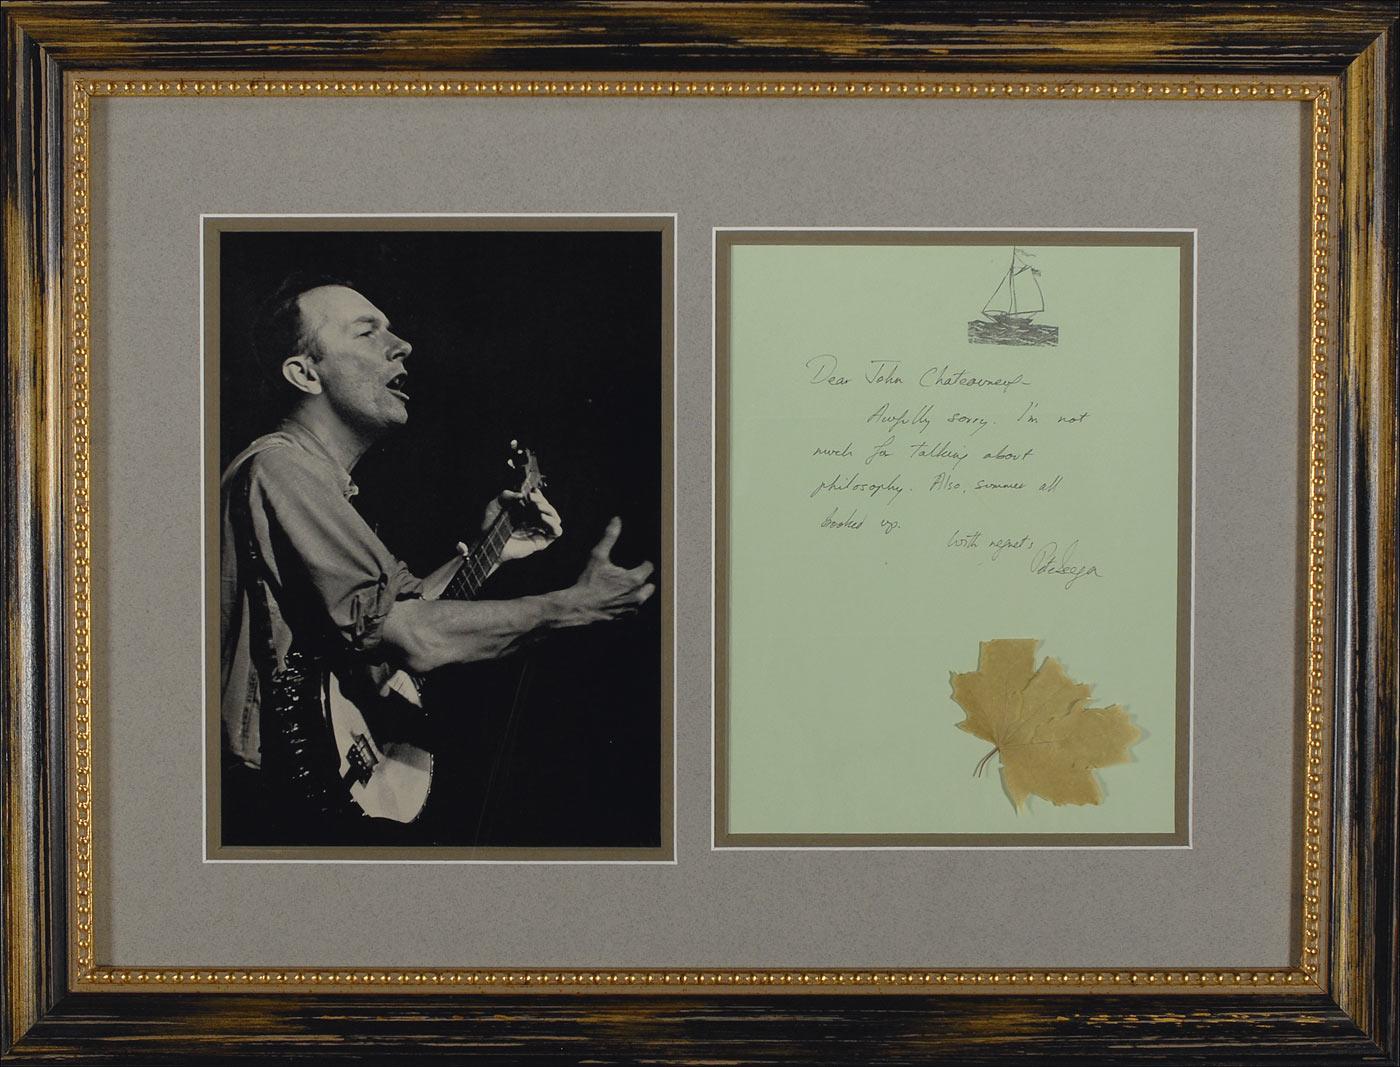 Dear John Chateauneuf–
Awfully sorry. I'm not
much for talking about
philosophy. Also, summer all
booked up.
With regrets
Pete Seeger